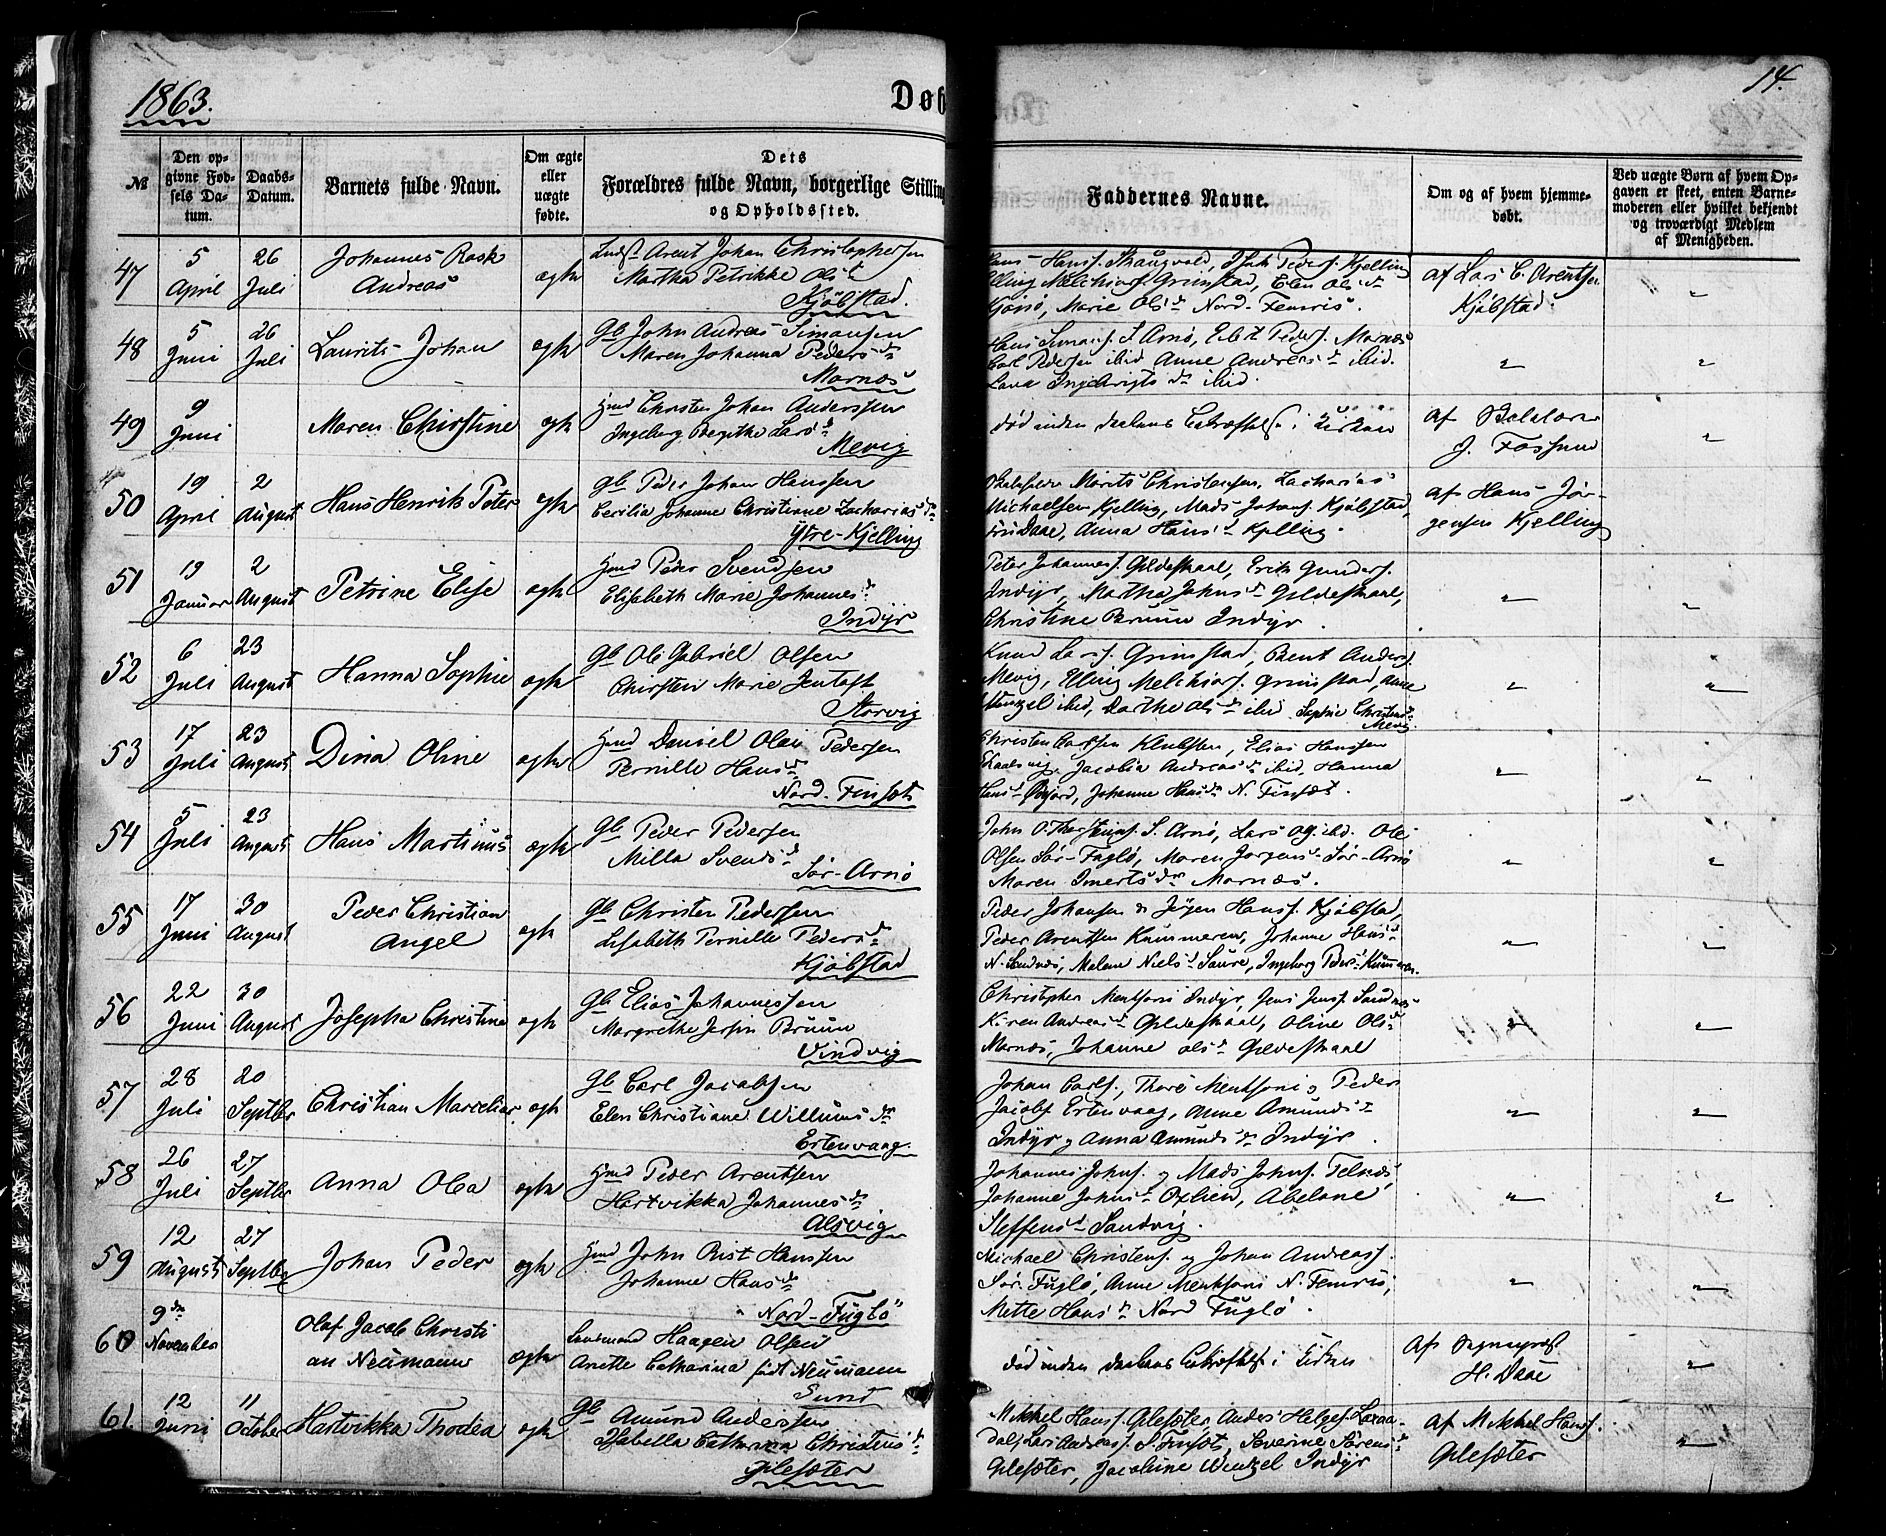 1863.
Døb
14.
№
Den opgivne Fødsels Datum.
Daabs-Datum.
Barnets fulde Navn.
Om ægte eller uægte fødte.
Dets Forældres fulde Navn, borgerlige Stilling og Opholdssted.
Faddernes Navne.
Om og af hvem hjemmedøbt.
Ved uægte Børn af hvem Opgaven er skeet, enten Barnemoderen eller hvilket bekjendt og troværdigt Medlem af Menigheden.
47 5 April 26 Juli Johannes Rask Andreas ægte
Indst Arent Johan Christophersen
Martha Petrikke Olsd
Kjøbstad.
Hans Hansf. Skaugvold, Pedersf. Kjelling
Elling Melchiorsf. Grimstad, Elen Olsdr
Marie Olsdr Nord-Femris.
af Lars C. Arentsen Kjøbstad
"
48 5 Juni 26 Juli Laurits Johan ægte
Gb John Andreas Simonsen
Maren Johanna Pedersdr
Mornæs
Hans Simonsf. S. Arnø, Pedersf. Mornæs
Carl Pedersen ibid Anne Andreasdr ibid.
Lava Ingebrigtsdr ibid.
"
"
49 9 Juni Maren Chirstine ægte
Hmd Christen Johan Anderssen
Ingeborg Begitha Larsd
Mevig
død inden daabens i Kirken
af J. Fossum
"
50 19 April 2 August Hans Henrik Peter ægte
Gb Peder Johan Hanssen
Cecilia Johanne Christiane Zachariasdr
Ytre-Kjelling
Morits Christensen, Zacharias
Michaelsen Kjelling, Mads Johansf. Kjøbstad,
Fru Daae, Anna Hansd Kjelling.
af Hans Jørgensen Kjelling
51 19 Januar 2 August Petrine Elise ægte
Hmd Peder Svendsen
Elisabeth Marie Johannesd
Indyr
Peter Johannesf. Gildeskaal, Erik Gundersf.
Indyr, Martha Johnsdr Gildeskaal,
Christine Bruun Indyr.
"
"
52 6 Juli 23 August Hanna Sophie ægte
Gb Ole Gabriel Olsen
Chirsten Marie Jentoft
Storvig
Knud Larsf. Grimstad, Bent Andersf.
Mevig, Elling Melchiorsf. Grimstad, Anne
Wenzel ibid, Dorthe Olsdr ibid Sophie Christensdr
Mevig
"
"
53 17 Juli 23 August Dina Oline ægte
Hmd Daniel Olai Pedersen
Pernille Hansdr
Nord-Finsæt
Christen Carlsen Elias Hanssen
Jacobia Andreasdr ibid, Hanna
Hansd Johanne Hansdr N. Finsæt.
"
"
54 5 Juli 23 August Hans Martinus ægte
Gb Peder Pedersen
Milla Svendsd
Sør-Arnø
John O. S. Arnø, Lars ibd. Ole
Olsen Sør-Fuglø, Maren Jørgensd Sør-Arnø
Maren Imertsdr Mornæs.
"
"
55 17 Juni 30 August Peder Christian Angel ægte
Gb Christen Pedersen
Lisabeth Pernille Pedersd
Kjøbstad
Peder Johansen & Jørgen Hansf. Kjøbstad,
Peder Arentsen Kunmaren, Johanne Hansd
N. Sandnæs, Malene Nielsd Saure, Ingeborg Pedersd
"
"
56 22 Juni 30 August Josepha Christine ægte
Gb Elias Johannessen
Margrethe Bruun
Vindvig
Christopher Mentsoni Indyr, Jens Jensf. Sandnæs
Kiren Andreasd Gildeskaal, Oline Olsd
Mornæs, Johanne Olsd Gildeskaal
"
"
57 28 Juli 20 Septbr Christian Marcelius ægte
Gb Carl Jacobsen
Elen Christiane Willumsdr
Ertenvaag.
Johan Carlsf., Thore Mentsoni & Peder
Jacobsf Ertenvaag, Anne Amundsdr
Indyr & Anna Amundsdr Indyr.
"
"
58 26 Juli 27 Septbr Anna Olea ægte
Hmd Peder Arentsen
Hartvikka Johannesdr
Alsvig
Johannes Johnsf. & Mads Johnsf. Telnæs
Johanne Johnsd Oxlien, Abelone
Steffensd Sandvig.
"
"
59 12 August 27 Septbr Johan Peder ægte
Hmd John Brist Hanssen
Johanne Hansdr
Nord-Fuglø
Michael Christensf. & Johan Andreasf.
Sør-Fuglø, Anne Mentsoni N. Femris,
Mette Hansdr Nord Fuglø.
"
"
60 9de November Olaf Jacob Christian Neumann ægte
Lensmand Haagen Olsen
Anette Catharina født Neumann
Sund
død inden daabens i Kirken
af Sognepræst H. Daae
"
61 12 Juni 11 October Hartvikka Thodea ægte
Gb Amund Andersen
Isabella Cathrina Christensd
Gilesæter
Mikkel Hansf. Gilesæter, Anders Helgesf.
Lars Andreasf. S. Finsæt, Severine Sørensd
Gilesæter, Jacobine Wenzel Indyr
af Mikkel Hansf. Gilesæter
"